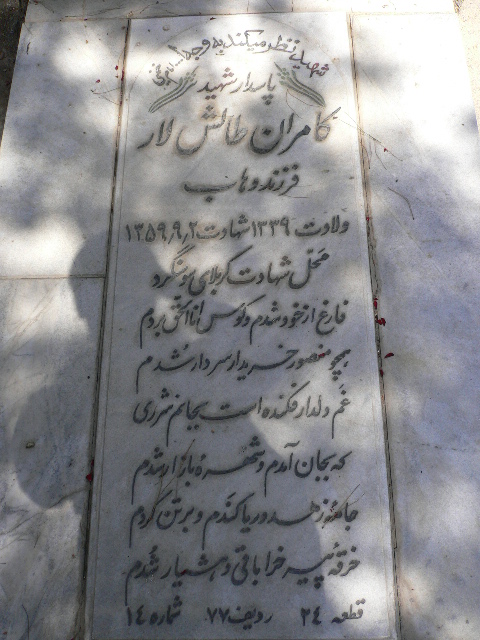 شهید نظر میکند به وجه الله
پاسدار شهید
کامران طالش لار
فرزند وهاب
ولادت ۱۳۳۹ شهادت ۱۳۵۹٫۹٫۲
محل شهادت کربلای سوسنگرد
فارغ از خود شدم و کوس انا الحق بزدم
همچو منصور خریدار سر دار شدم
غم دلدار فکنده است بجانم شرری
که بجان آمدم و شهره بازار شدم
جامه زهد و ریا کندم و بر تن کردم
خرقه پیر خراباتی و هشیار شدم
قطعه ۲۴ ردیف ۷۷ شماره ۱۴